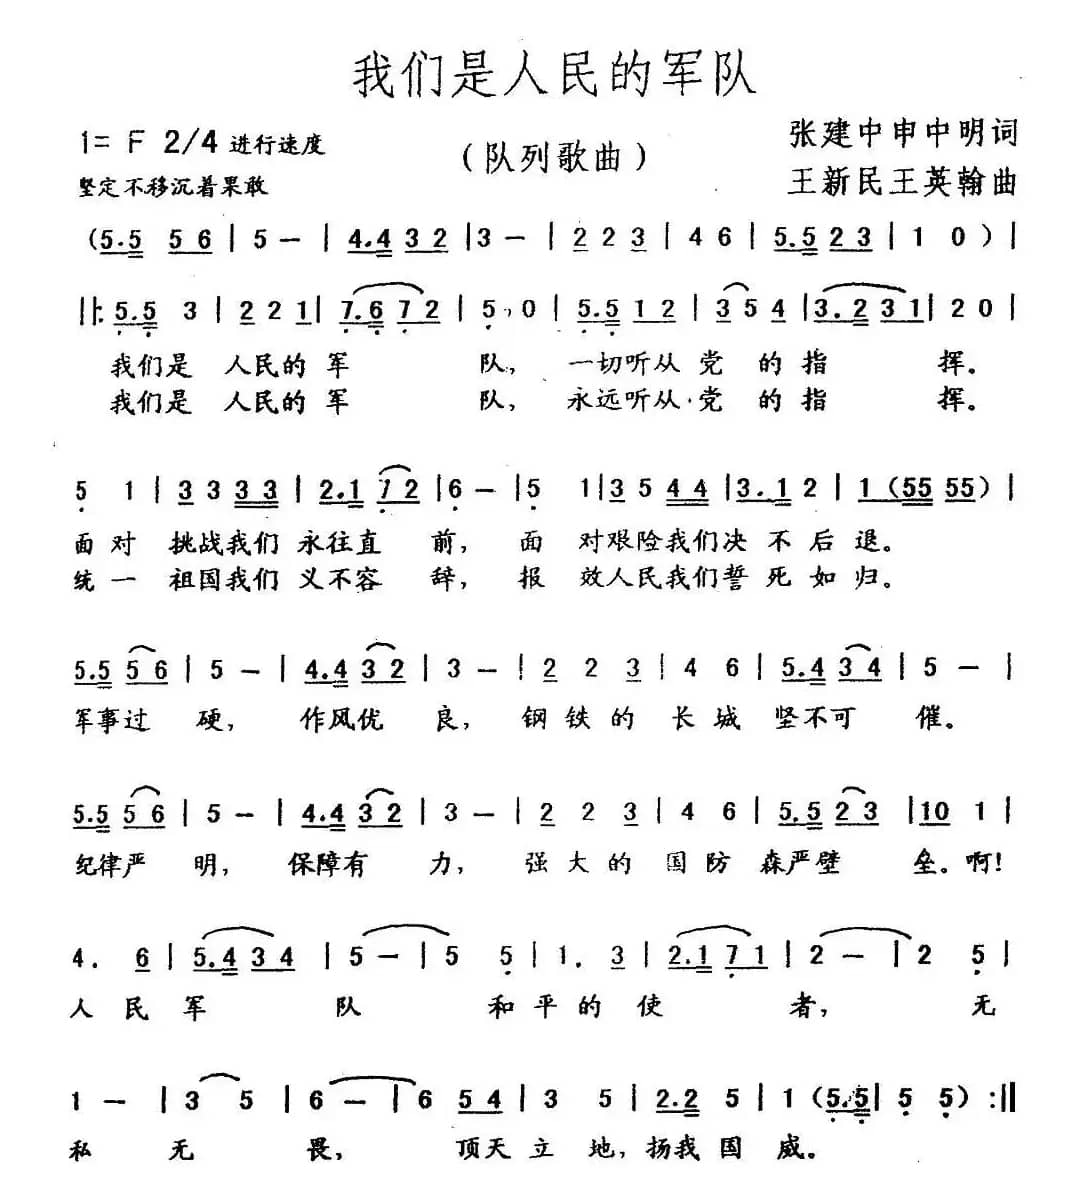 我们是人民的军队
1= F 2/4 进行速度
（队列歌曲）
张建中申中明词
坚定不移沉着果敢
王新民王英翰曲
（5.5 5 6 | 5 — | 4.4 3 2 | 3 — | 2 2 3 | 4 6 | 5.5 2 3 | 1 0 ）|
||: 5.5 3 | 2 2 1 | 7.6 7 2 | 5, 0 | 5.5 1 2 | 3 5 4 | 3.2 3 1 | 2 0 |
我们是 人民的 军 队, 一切听从 党 的 指 挥。
我们是 人民的 军 队, 永远听从·党 的 指 挥。
5 1 | 3 3 3 3 | 2.1 7 2 | 6 — | 5 1 | 3 5 4 4 | 3.1 2 | 1（55 55）|
面 对 挑战我们 永往直 前, 面 对艰险我们决 不 后 退。
统 一 祖国我们 义不容 辞, 报 效人民我们誓 死 如 归。
5.5 5 6 | 5 — | 4.4 3 2 | 3 — | 2 2 3 | 4 6 | 5.4 3 4 | 5 — |
军事过 硬, 作风优 良, 钢 铁 的 长 城 坚不可 催。
5.5 5 6 | 5 — | 4.4 3 2 | 3 — | 2 2 3 | 4 6 | 5.5 2 3 | 10 1 |
纪律严 明, 保障有 力, 强 大 的 国 防 森严壁 垒。啊!
4. 6 | 5.4 3 4 | 5 — | 5 5 | 1. 3 | 2.1 7 1 | 2 — | 2 5 |
人 民 军 队 和 平 的 使 者, 无
1 — | 3 5 | 6 — | 6 5 4 | 3 5 | 2.2 5 | 1（5.5 | 5 5）:||
私 无 畏, 顶天 立 地, 扬我 国 威。